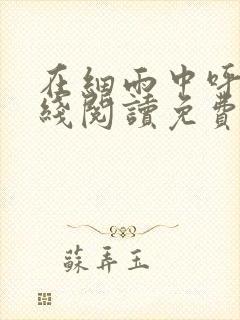 在細雨中呼
綫閱讀免費
蘇弄玉